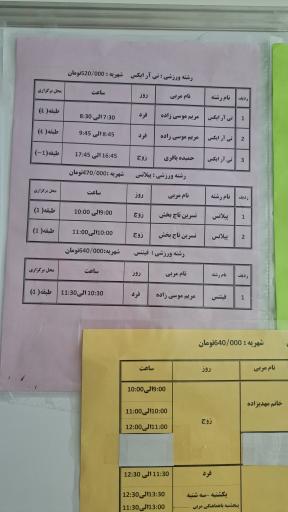 رشته ورزشی : تی آر ایکس شهریه :520/000تومان
ردیف نام رشته نام مربی روز ساعت محل برگزاری
1 تی آر ایکس مریم موسی زاده فرد 7:30 الی 8:30 طبقه(1)
2 تی آر ایکس مریم موسی زاده فرد 8:45 الی 9:45 طبقه(1)
3 تی آر ایکس حمیده باقری زوج 16:45 الی 17:45 طبقه(1-)
رشته ورزشی : پیلاتس شهریه :470/000تومان
ردیف نام رشته نام مربی روز ساعت محل برگزاری
1 پیلاتس نسرین تاج بخش زوج 9:00الی 10:00 طبقه(1)
2 پیلاتس نسرین تاج بخش زوج 10:00الی 11:00 طبقه(1)
رشته ورزشی : فیتنس شهریه:640/000تومان
ردیف نام رشته نام مربی روز ساعت محل برگزاری
1 فیتنس مریم موسی زاده فرد 10:30 الی 11:30 طبقه(1)
شهریه : 640/000تومان
نام مربی روز ساعت
9:00الی10:00
خانم مهدیزاده زوج 10:00الی11:00
11:00الی12:00
فرد 11:30 الی 12:30
یکشنبه -سه شنبه 13:30الی12:30
پنجشنبه باهماهنگی مربی 13:00الی11:30